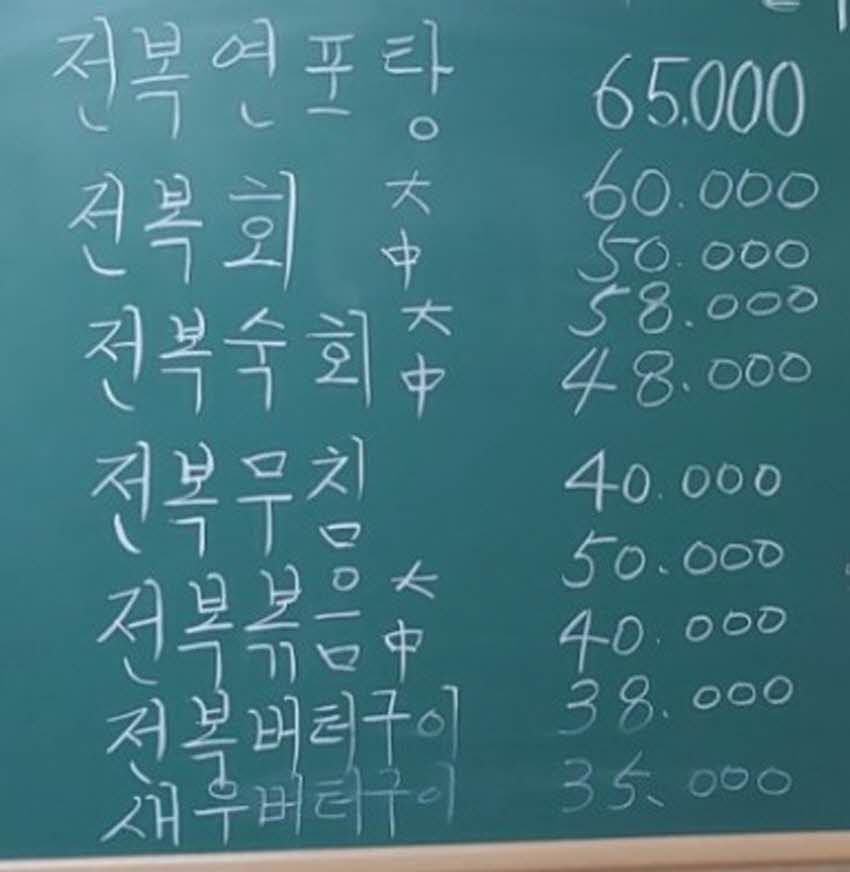 전복연포탕 65.000
전복회 大 60.000
中 50.000
전복숙회 大 58.000
中 48.000
전복무침 40.000
전복볶음 大 50.000
中 40.000
전복버터구이 38.000
새우버터구이 35.000